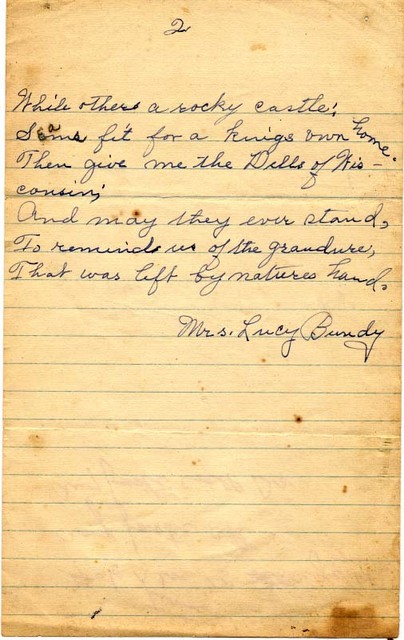 2
While others a rocky castle;
Seams fit for a kings own home.
Then give me the Dells of Wis-
consin;
And may they ever stand,
To reminds us of the grandure,
That was left by natures hand.
Mrs. Lucy Bundy